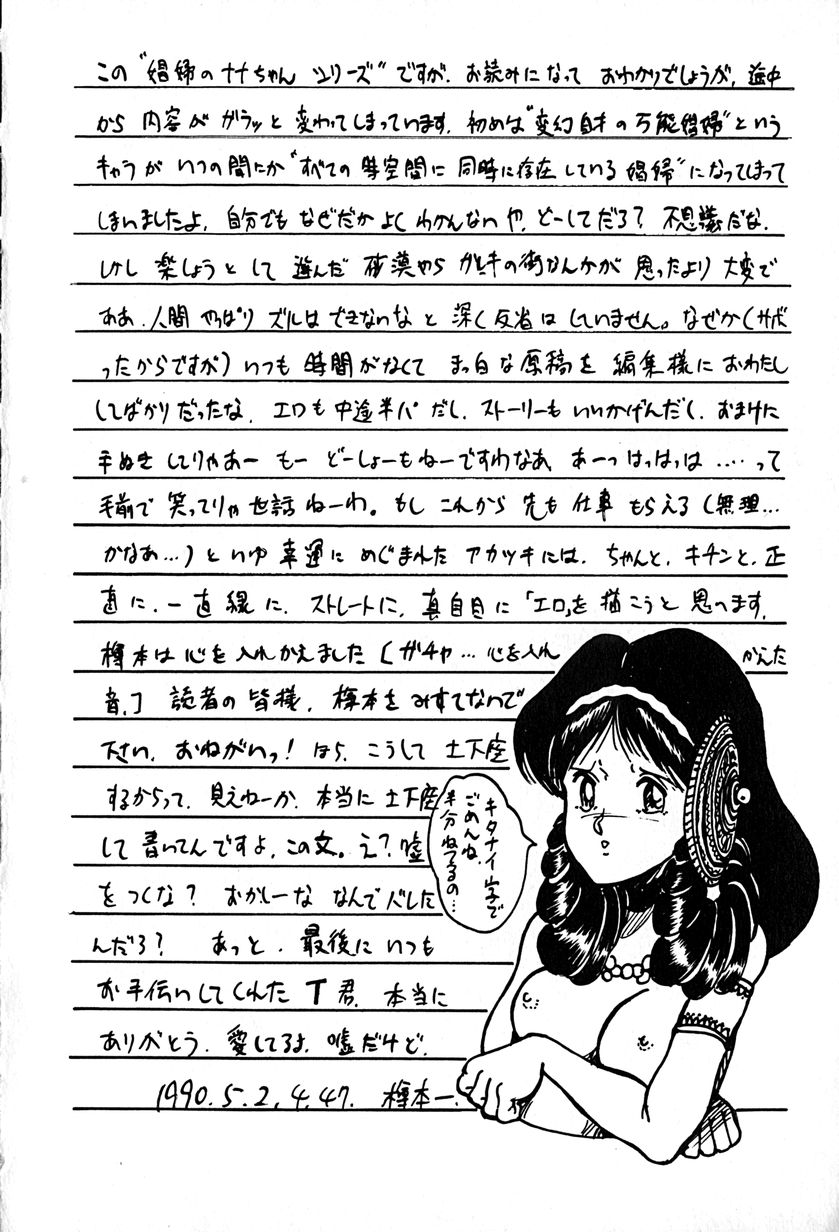 この"娼婦のナナちゃんシリーズ"ですが、お読みになって おわかりでしょうが、途中
から 内容が ガラッと 変わってしまっています。初めは"変幻自才の万能娼婦"という
キャラが いつの間にか"すべての 時空間に 同時に存在している 娼婦"になってしまって
しまいましたよ。自分でも なぜだか よく わかんないや。どーしてだろ? 不思議だな。
しかし 楽しようとして 選んだ 砂漠やら ガレキの街なんかが 思ったより 大変で
ああ、人間 やっぱり ズルは できないな と 深く反省は していません。なぜか(サボ
ったからですが)いつも 時間がなくて まっ白な原稿を 編集様に おわたし
してばかりだったな。エロも 中途半パ だし、ストーリーも いいかげんだし、おまけに
手ぬき してりゃあー もー どーしょーもねーですわなあ、あーっはっはっは‥‥って
手前で 笑ってりゃ世話ねーわ。もし これから 先も 仕事 もらえる(無理…
かなあ…)といゆ 幸運に めぐまれた アカツキには、ちゃんと、キチンと、正
直に、一直線に、ストレートに、真自目に「エロ」を 描こうと 思へます。
樽本は 心を 入れかえました〔ガチャ… 心を入れ かえた
音〕 読者の 皆様、樽本を みすてないで
下さい、おねがいっ! ほら、こうして 土下座
するからって、見えねーか、本当に 土下座
して 書いてんですよ、この文。え? 嘘
を つくな? おかしーな なんで バレた
んだろ? あっと、最後に いつも
お手伝いしてくれた T君、本当に
ありがとう。愛してるよ。嘘だけど。
1990.5.2.4.47. 樽本一.
キタナイ字で
ごめんね。
半分ねてるの…